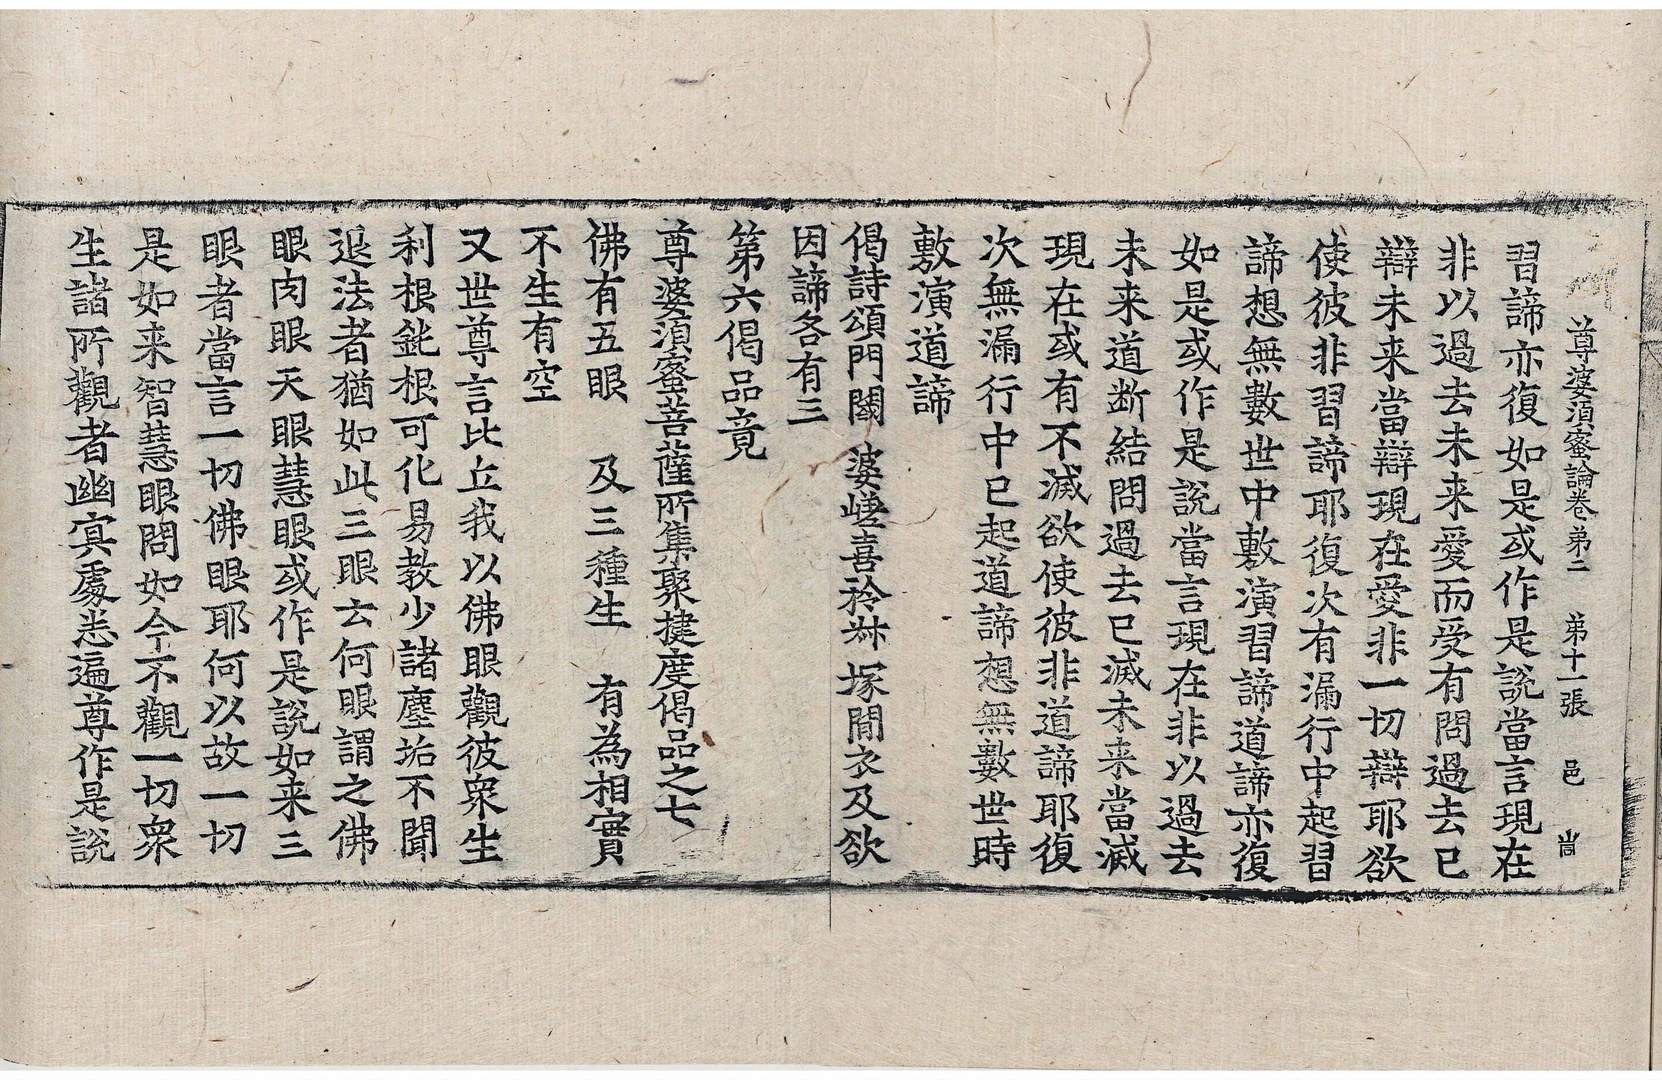 尊婆湏蜜論卷第二　第十一張　邑　啇
習諦亦復如是或作是說當言現在
非以過去未来愛而受有問過去已
辯未来當辯現在愛非一切辯耶欲
使彼非習諦耶復次有漏行中起習
諦想無數世中敷演習諦道諦亦復
如是或作是說當言現在非以過去
未来道断結問過去已滅未来當滅
現在或有不滅欲使彼非道諦耶復
次無漏行中已起道諦想無數世時
敷演道諦
偈詩頌門閾　婆嵯喜矜㳤　塚間衣及欲
因諦各有三
第六偈品竟
尊婆湏蜜菩薩所集聚揵度偈品之七
佛有五眼　及三種生　有為相實
不生有空
又世尊言比丘我以佛眼觀彼衆生
利根鈍根可化易教少諸塵垢不聞
退法者猶如此三眼云何眼謂之佛
眼肉眼天眼慧眼或作是說如来三
眼者當言一切佛眼耶何以故一切
是如来智慧眼問如今不觀一切衆
生諸所觀者幽冥處悉遍尊作是說